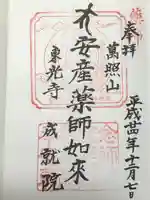 奉拝
萬照山
平成廿四年十二月七日
安産薬師如来
東光寺
成就院